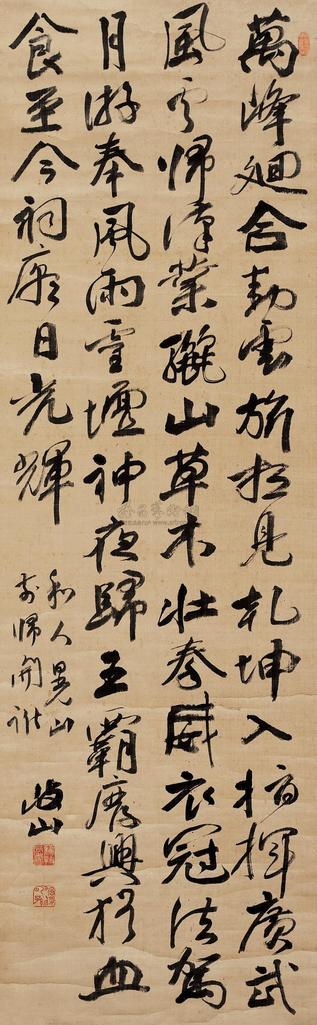 萬峰廻合動雲旂想見乾坤入指揮廣武
風雲歸漢業驪山草木壯秦威衣冠法駕
月游奉風雨靈壇神夜歸王霸廢興猶血
食至今祠廟日光輝
和人晃山
歸開
岐山